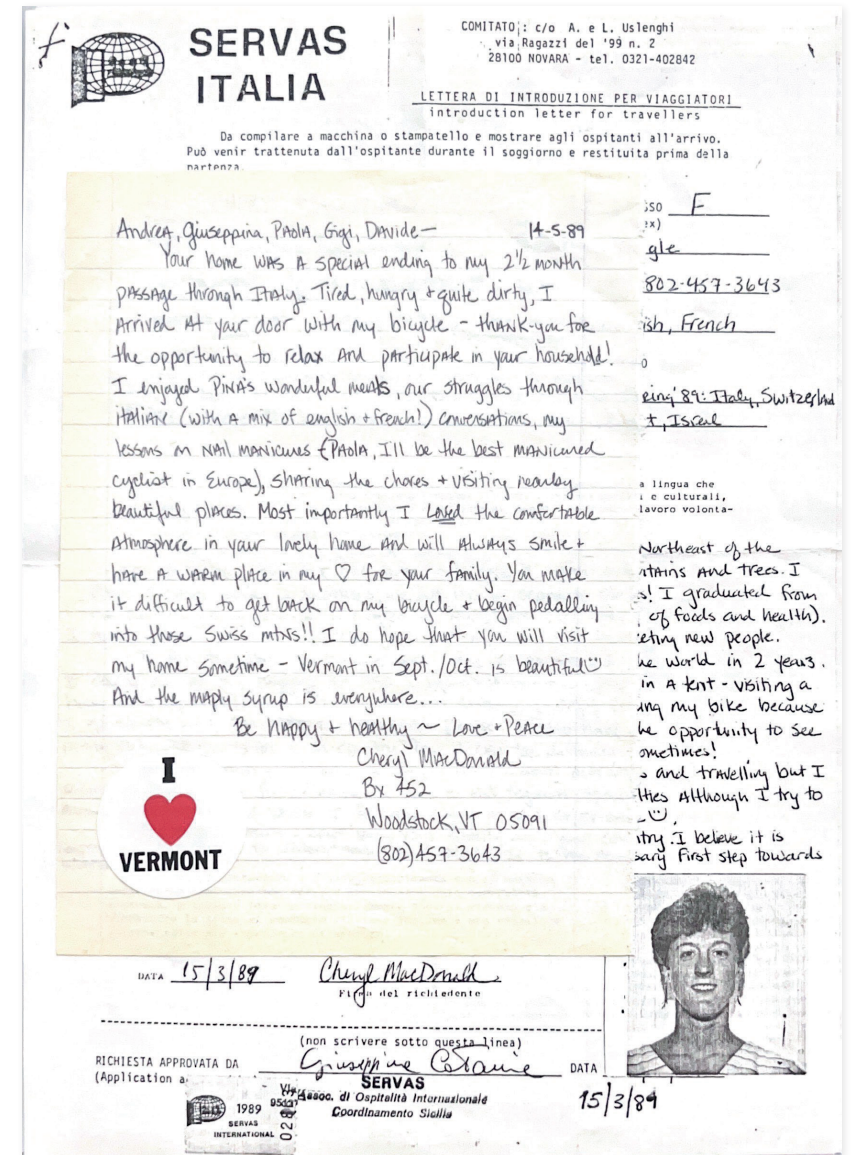 SERVAS
ITALIA
COMITATO : c/o A. e L. Uslenghi
via Ragazzi del '99 n. 2
28100 NOVARA - tel. 0321-402842
LETTERA DI INTRODUZIONE PER VIAGGIATORI
introduction letter for travellers
Da compilare a macchina o stampatello e mostrare agli ospitanti all'arrivo.
Può venir trattenuta dall'ospitante durante il soggiorno e restituita prima della
partenza.
Andrea, Giuseppina, Paola, Gigi, Davide— 14-5-89
Your home was a special ending to my 2½ month
passage through Italy. Tired, hungry + quite dirty, I
arrived at your door with my bicycle - thank-you for
the opportunity to relax and participate in your household!
I enjoyed Pina's wonderful meals, our struggles through
italian (with a mix of english + french!) conversations, my
lessons on nail manicures (Paola, I'll be the best manicured
cyclist in Europe), sharing the chores + visiting nearby
beautiful places. Most importantly I Loved the comfortable
atmosphere in your lovely home and will always smile +
have a warm place in my ♡ for your family. You make
it difficult to get back on my bicycle + begin pedalling
into those Swiss mtns!! I do hope that you will visit
my home sometime - Vermont in Sept./Oct. is beautiful☺
And the maply syrup is everywhere...
Be happy + healthy ~ Love + Peace
Cheryl MacDonald
Bx 452
Woodstock, VT 05091
(802)457-3643
I
♥
VERMONT
SSO F
ex)
gle
802-457-3643
ish, French
eing '89: Italy, Switzerland
t, Israel
a lingua che
i e culturali,
lavoro volonta-
Northeast of the
ntains and trees. I
s! I graduated from
of foods and health).
eting new people.
he world in 2 years.
in a tent - visiting a
ing my bike because
he opportunity to see
ometimes!
s and travelling but I
lties Although I try to
☺.
ntry. I believe it is
sary first step towards
DATA 15/3/89 Cheryl MacDonald
Firma del richiedente
(non scrivere sotto questa linea)
RICHIESTA APPROVATA DA Giuseppina DATA
(Application a
15/3/89
SERVAS
Assoc. di Ospitalità Internazionale
Coordinamento Sicilia
1989
SERVAS
INTERNATIONAL